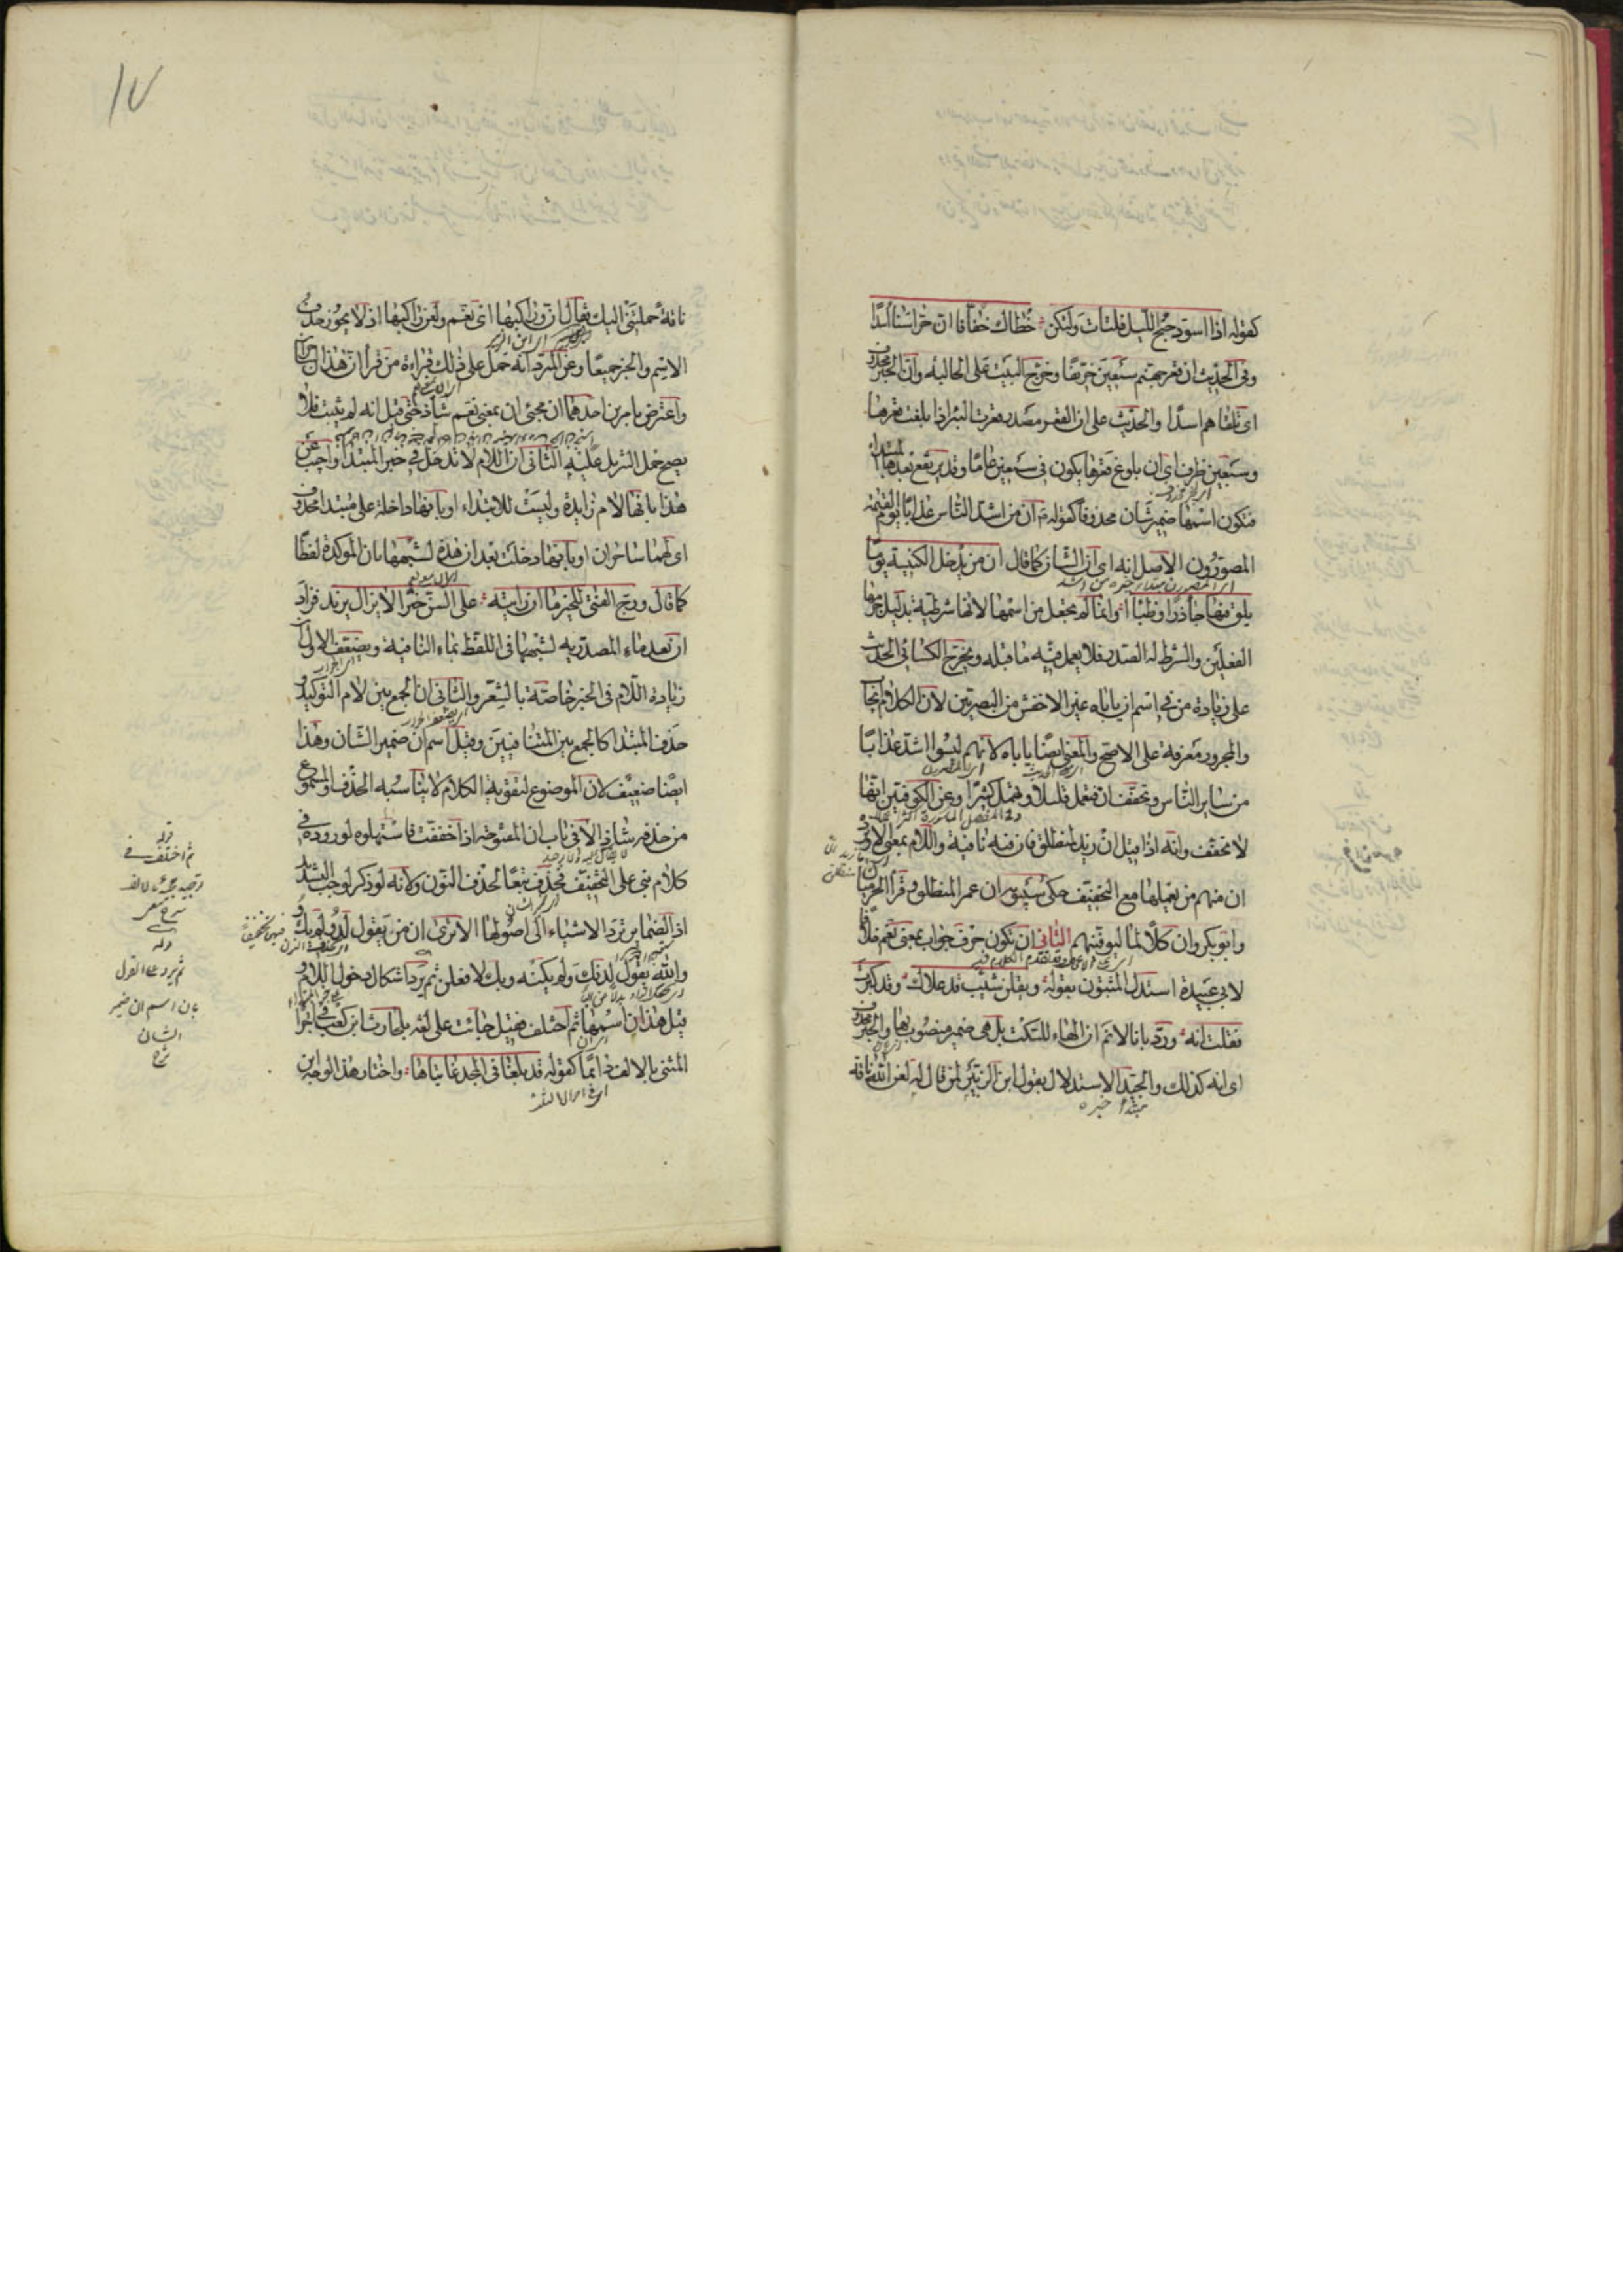 كقوله اذا اسود جنح الليل فلتات ولتكن خطاك خفافا ان حراسنا اسدا
وفى الحديث ان قعر جهنم سبعين خريفا وخرج البيت على الحالية وان الخبر محذوف
اى تلقاهم اسدا والحديث على ان القعر مصدر قعرت البئر اذا بلغت قعرها
وسبعين ظرف اى ان بلوغ قعرها يكون فى سبعين عاما وقد يرتفع بعدها المبتدا
فتكون اسمها ضمير شان محذوفا كقوله ان من اشد الناس عذابا يوم القيمة
المصورون الاصل انه اى ان الشان كما قال ان من يدخل الكنيسة يوما
يلق فيها جأذرا وظباا وانما لم يجعل من اسمها لانها شرطية بدليل جزمها
الفعلين والشرط له الصدر فلا يعمل فيه ما قبله وتخرج الكسائى الحديث
على زيادة من فى اسم ان ياباه غير الاخفش من البصريين لان الكلام ايجاب
والمجرور معرفة على الاصح والمعنى ايضا ياباه لانهم ليسوا اشد عذابا
من ساير الناس وتخفف ان فتعمل قليلا وتهمل كثيرا وعن الكوفيين انها
لا تخفف وانه اذا قيل ان زيد لمنطلق فان فيه نافية واللام بمعنى الا ورد
ان منهم من يعملها مع التخفيف حكى سيبويه ان عمرا لمنطلق وقرأ الحرميان
وابو بكر وان كلا لما ليوفينهم الثانى ان تكون حرف جواب بمعنى نعم خلافا
لابى عبيدة استدل المثبتون بقوله ويقلن شيب قد علاك وقد كبرت
فقلت انه ورد بانا لا نم ان الهاء للسكت بل هى ضمير منصوب بها والخبر محذوف
اى انه كذلك والجيد الاستدلال بقول ابن الزبير لمن قال له لعن الله ناقة
مبتدأ خبره
١٧
ناقة حملتنى اليك فقال ان وراكبها اى نعم ولعن راكبها اذ لا يجوز حذف
الاسم والخبر جميعا وعن المبرد انه حمل على ذلك قراءة من قرأ ان هذان لساحران
واعترض بامرين احدهما ان مجئ ان بمعنى نعم شاذ حتى قيل انه لم يثبت فلا
يصح حمل التنزيل عليه الثانى ان اللام لا تدخل فى خبر المبتدا واجيب عن
هذا بانها لام زايدة وليست للابتداء او بانها داخلة على مبتدا محذوف
اى لهما ساحران او بانها دخلت بعد ان هذه لشبهها بان الموكدة لفظا
كما قال ورج الفتى للخير ما ان رايته على السن خيرا لا يزال يزيد فزاد
ان بعد ماء المصدرية لشبهها فى اللفظ بماء النافية ويضعف الاول ان
زيادة اللام فى الخبر خاصة بالشعر والثانى ان الجمع بين لام التوكيد و
حذف المبتدا كالجمع بين المتنافيين وقيل اسم ان ضمير الشان وهذا
ايضا ضعيف لان الموضوع لتقوية الكلام لا يناسبه الحذف والمسموع
من حذفه شاذ الا فى باب ان المفتوحة اذا خففت فاستهلوه لوروده فى
كلام بنى على التخفيف فحذف تبعا لحذف النون ولانه لو ذكر لوجب التشديد
اذ الضماير ترد الاشياء الى اصولها الا ترى ان من يقول لد ولم يك
والله يقول لدنك ولم يكنه وبك لافعلن ثم يرد اشكال دخول اللام و
قيل هذان اسمها ثم اختلف فقيل جائت على لغة بلحارث ابن كعب فى اجراء
المثنى بالالف دائما كقوله قد بلغا فى المجد غايتاها واختار هذا الوجه ابن
قوله
ثم اختلف فى
قوله
ثم يرد على القول
بان اسم ان ضمير
الشان